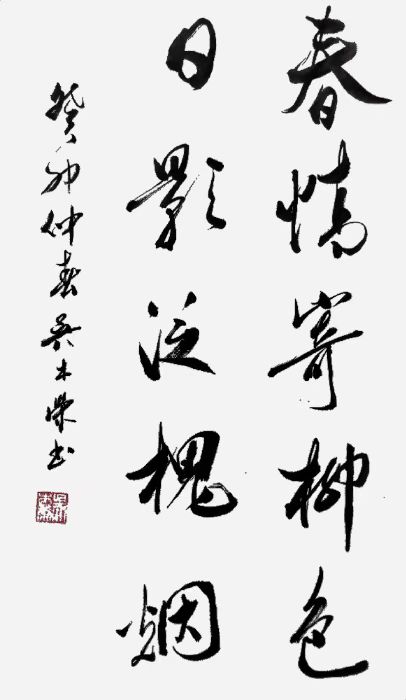 春情寄柳色
日影泛槐烟
癸卯仲春吴木荣书